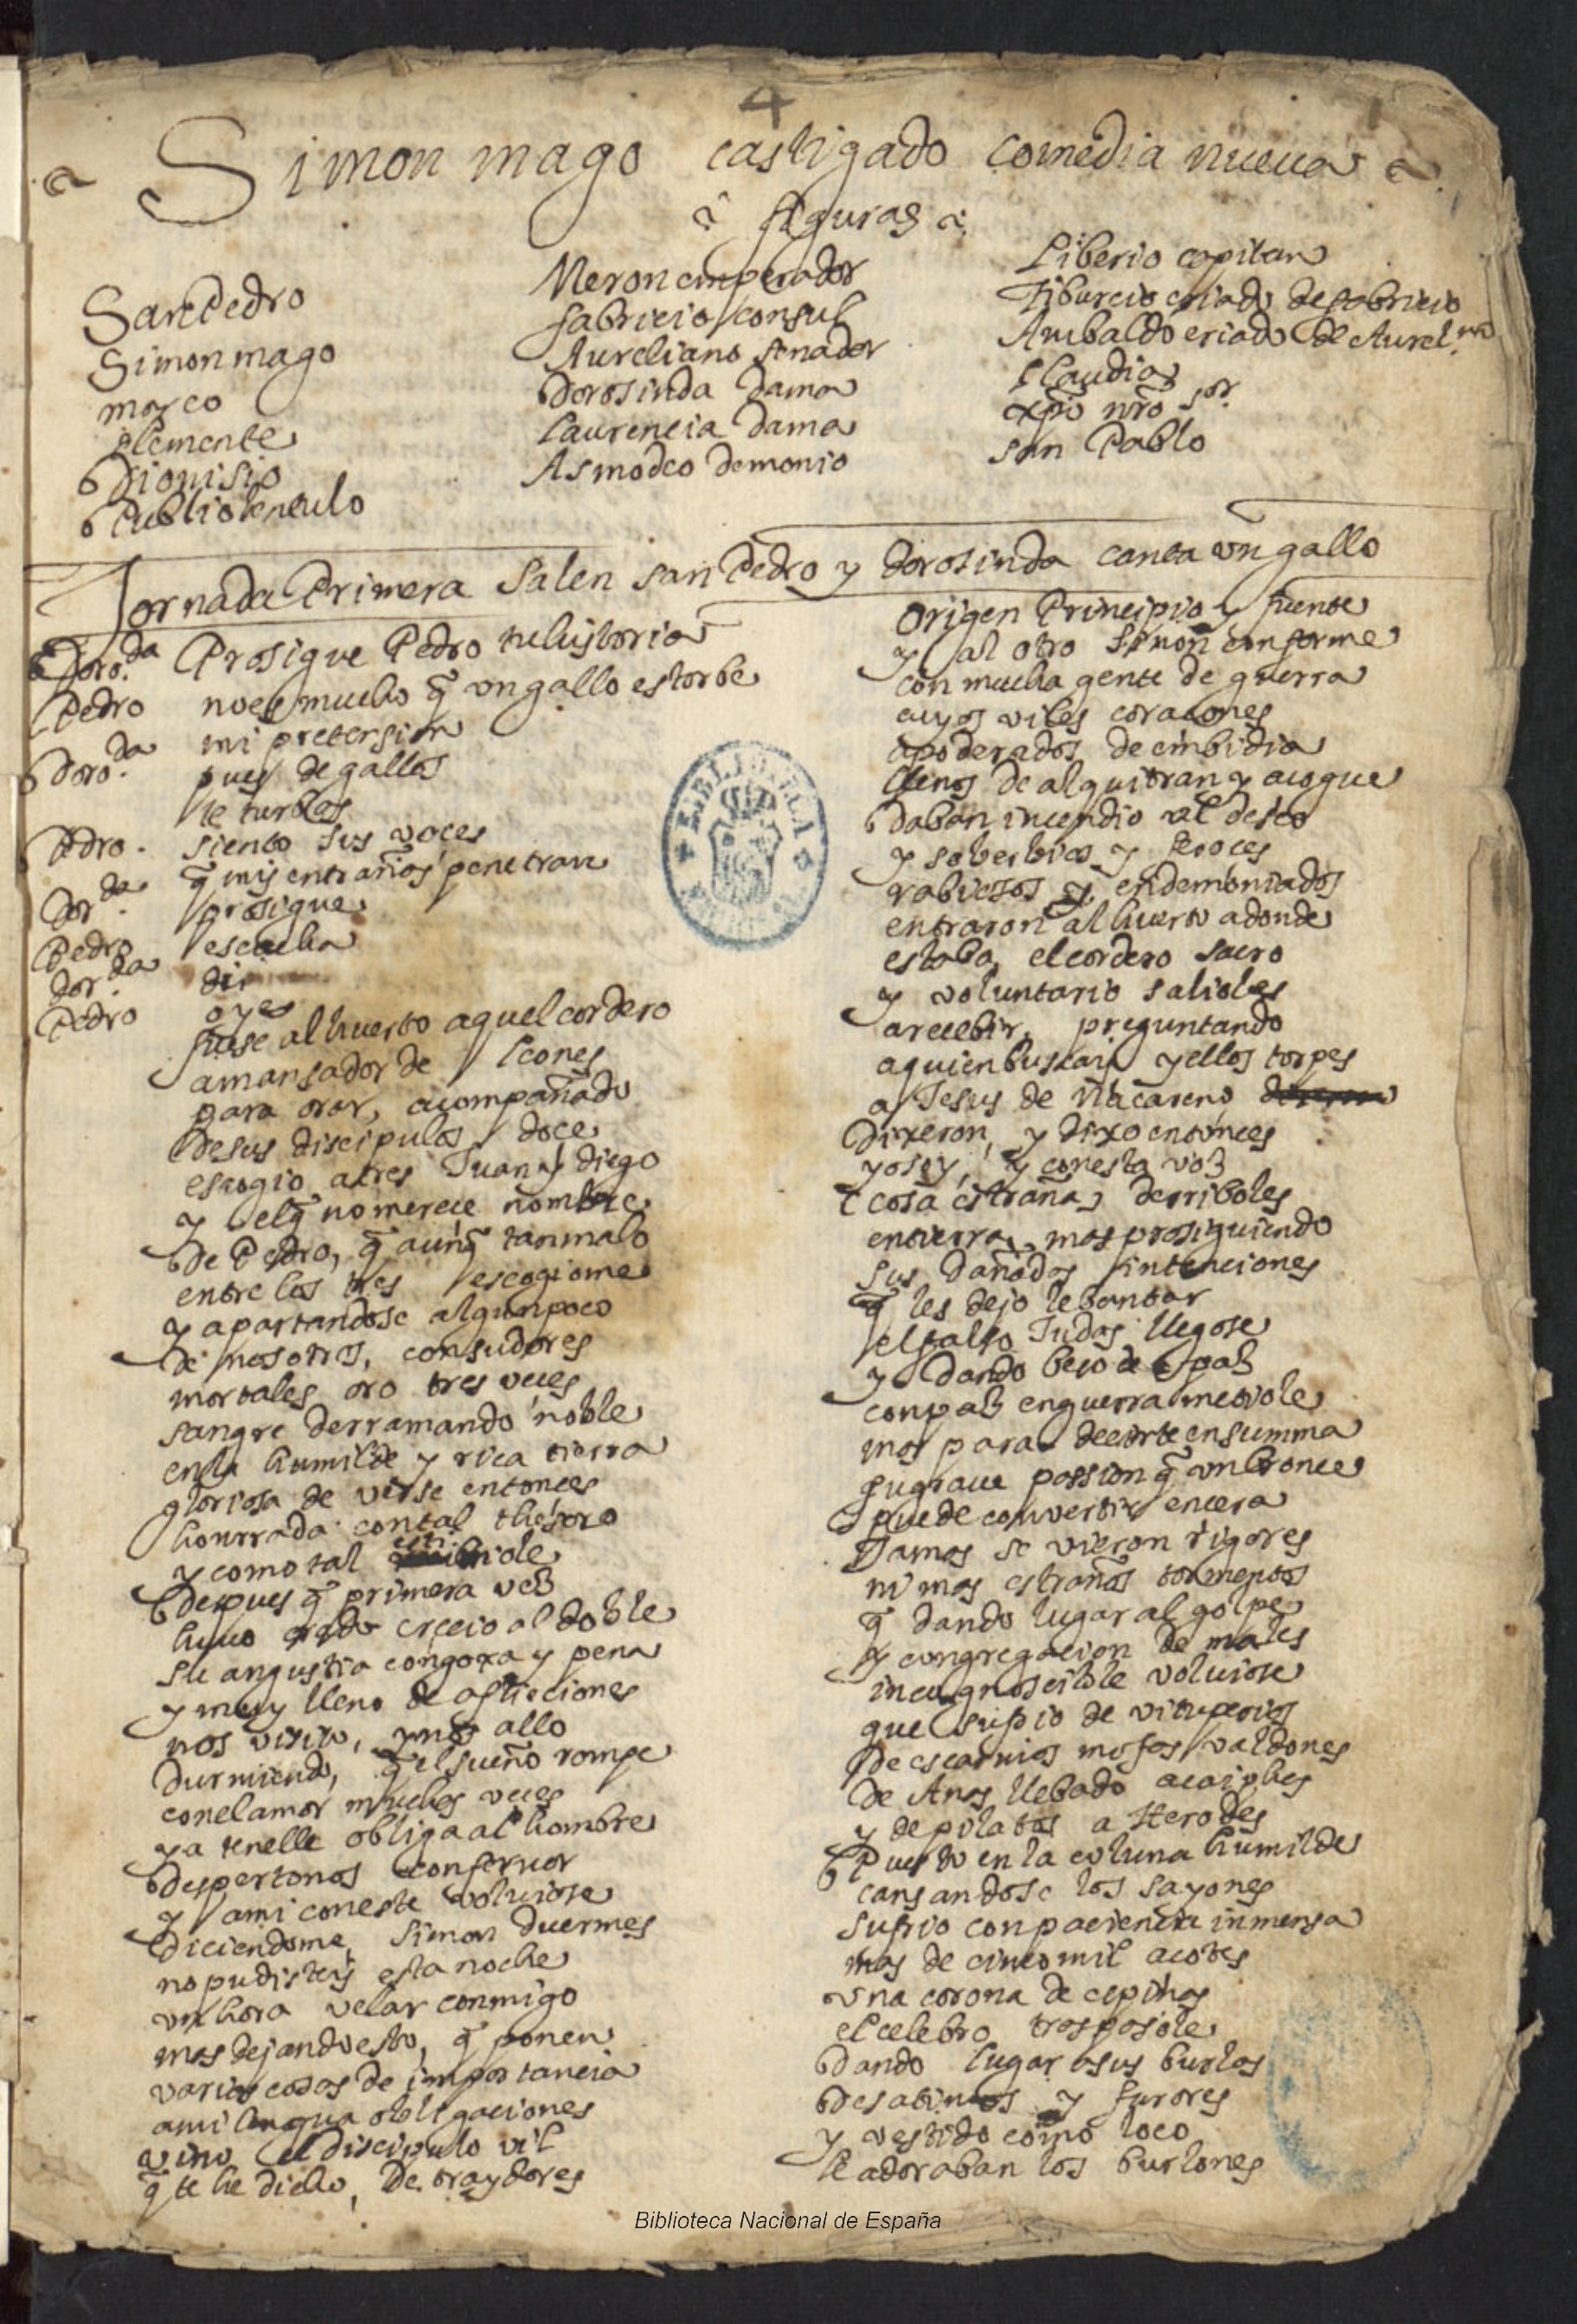 4
Simon mago castigado comedia nueva
figuras
San Pedro
Simon mago
marco
clemente
Dionisio
Publio lentulo
Neron emperador
fabricio consul
Aureliano senador
Dorosinda dama
Laurencia dama
Asmodeo demonio
Liberio capitan
Tiburcio criado de fabricio
Anibaldo criado de Aurel.no
Claudia
xpo nro sor.
san Pablo
Jornada Primera Salen san Pedro y dorosinda canta un gallo
Doro.da Prosigue Pedro tu historia
Pedro no es mucho q̃ un gallo estorbe
mi pretension
Doro.da pues de gallos
te turbas
Pedro. siento sus voces
q̃ mis entrañas penetran
Dor.da prosigue
Pedro escucha
dor.da di
Pedro oye
fuese al huerto aquel cordero
amansador de leones
para orar, acompañado
de sus discipulos doce
escogio a tres Juan y diego
y el q̃ no merece nombre
de Pedro, q̃ aunq̃ tan malo
entre los tres escogiome
y apartandose algun poco
de nosotros, con sudores
mortales oro tres veces
sangre derramando noble
en la humilde y rica tierra
gloriosa de verse entonces
honrrada con tal thesoro
y como tal
despues q̃ primera vez
huuo orado crecio al doble
su angustia congoxa y pena
y muy lleno de aflicciones
nos visito, y nos allo
durmiendo, q̃ el sueño rompe
con el amor muchas veces
y a tenelle obliga al hombre
despertonos con feruor
y a mi con este voluiose
diciendome, simon duermes
no pudisteis esta noche
un hora velar conmigo
mas dejando esto, q̃ ponen
varias cosas de importancia
a mi lengua obligaciones
vino el discipulo vil
q̃ te he dicho, De traydores
origen Principio y fuente
y al otro simon conforme
con mucha gente de guerra
cuyos viles coraçones
apoderados de embidia
llenos de alquitran y açogue
daban incendio al deseo
y soberbios y feroces
rabiosos y endemoniados
entraron al huerto adonde
estaba el cordero sacro
y voluntario salioles
a recebir, preguntando
a quien buscan y ellos torpes
a Jesus de Naçareno
dixeron, y dixo entonces
yo soy, y con esta voz
cosa estraña derriboles
en tierra, mas prosiguiendo
sus dañadas intenciones
q̃ les dejo lebantar
el falso Judas llegose
y dando beso de paz
con paz en guerra
mas para decirte en summa
su graue passion q̃ un bronce
puede convertir en cera
Jamas se vieron rigores
ni mas estraños tormentos
q̃ dando lugar al golpe
y congregacion de males
incognoscible voluiose
que sufrio de vituperios
de escarnios mofas valdones
de Anas llebado a caiphas
y de pilatos a Herodes
Puesto en la coluna humilde
cansandose los sayones
sufrio con paciencia inmensa
mas de cinco mil açotes
una corona de espinas
el celebro trasposole
dando lugar a sus burlas
desatinos y furores
y vestido como loco
le adoraban los burlones
Biblioteca Nacional de España